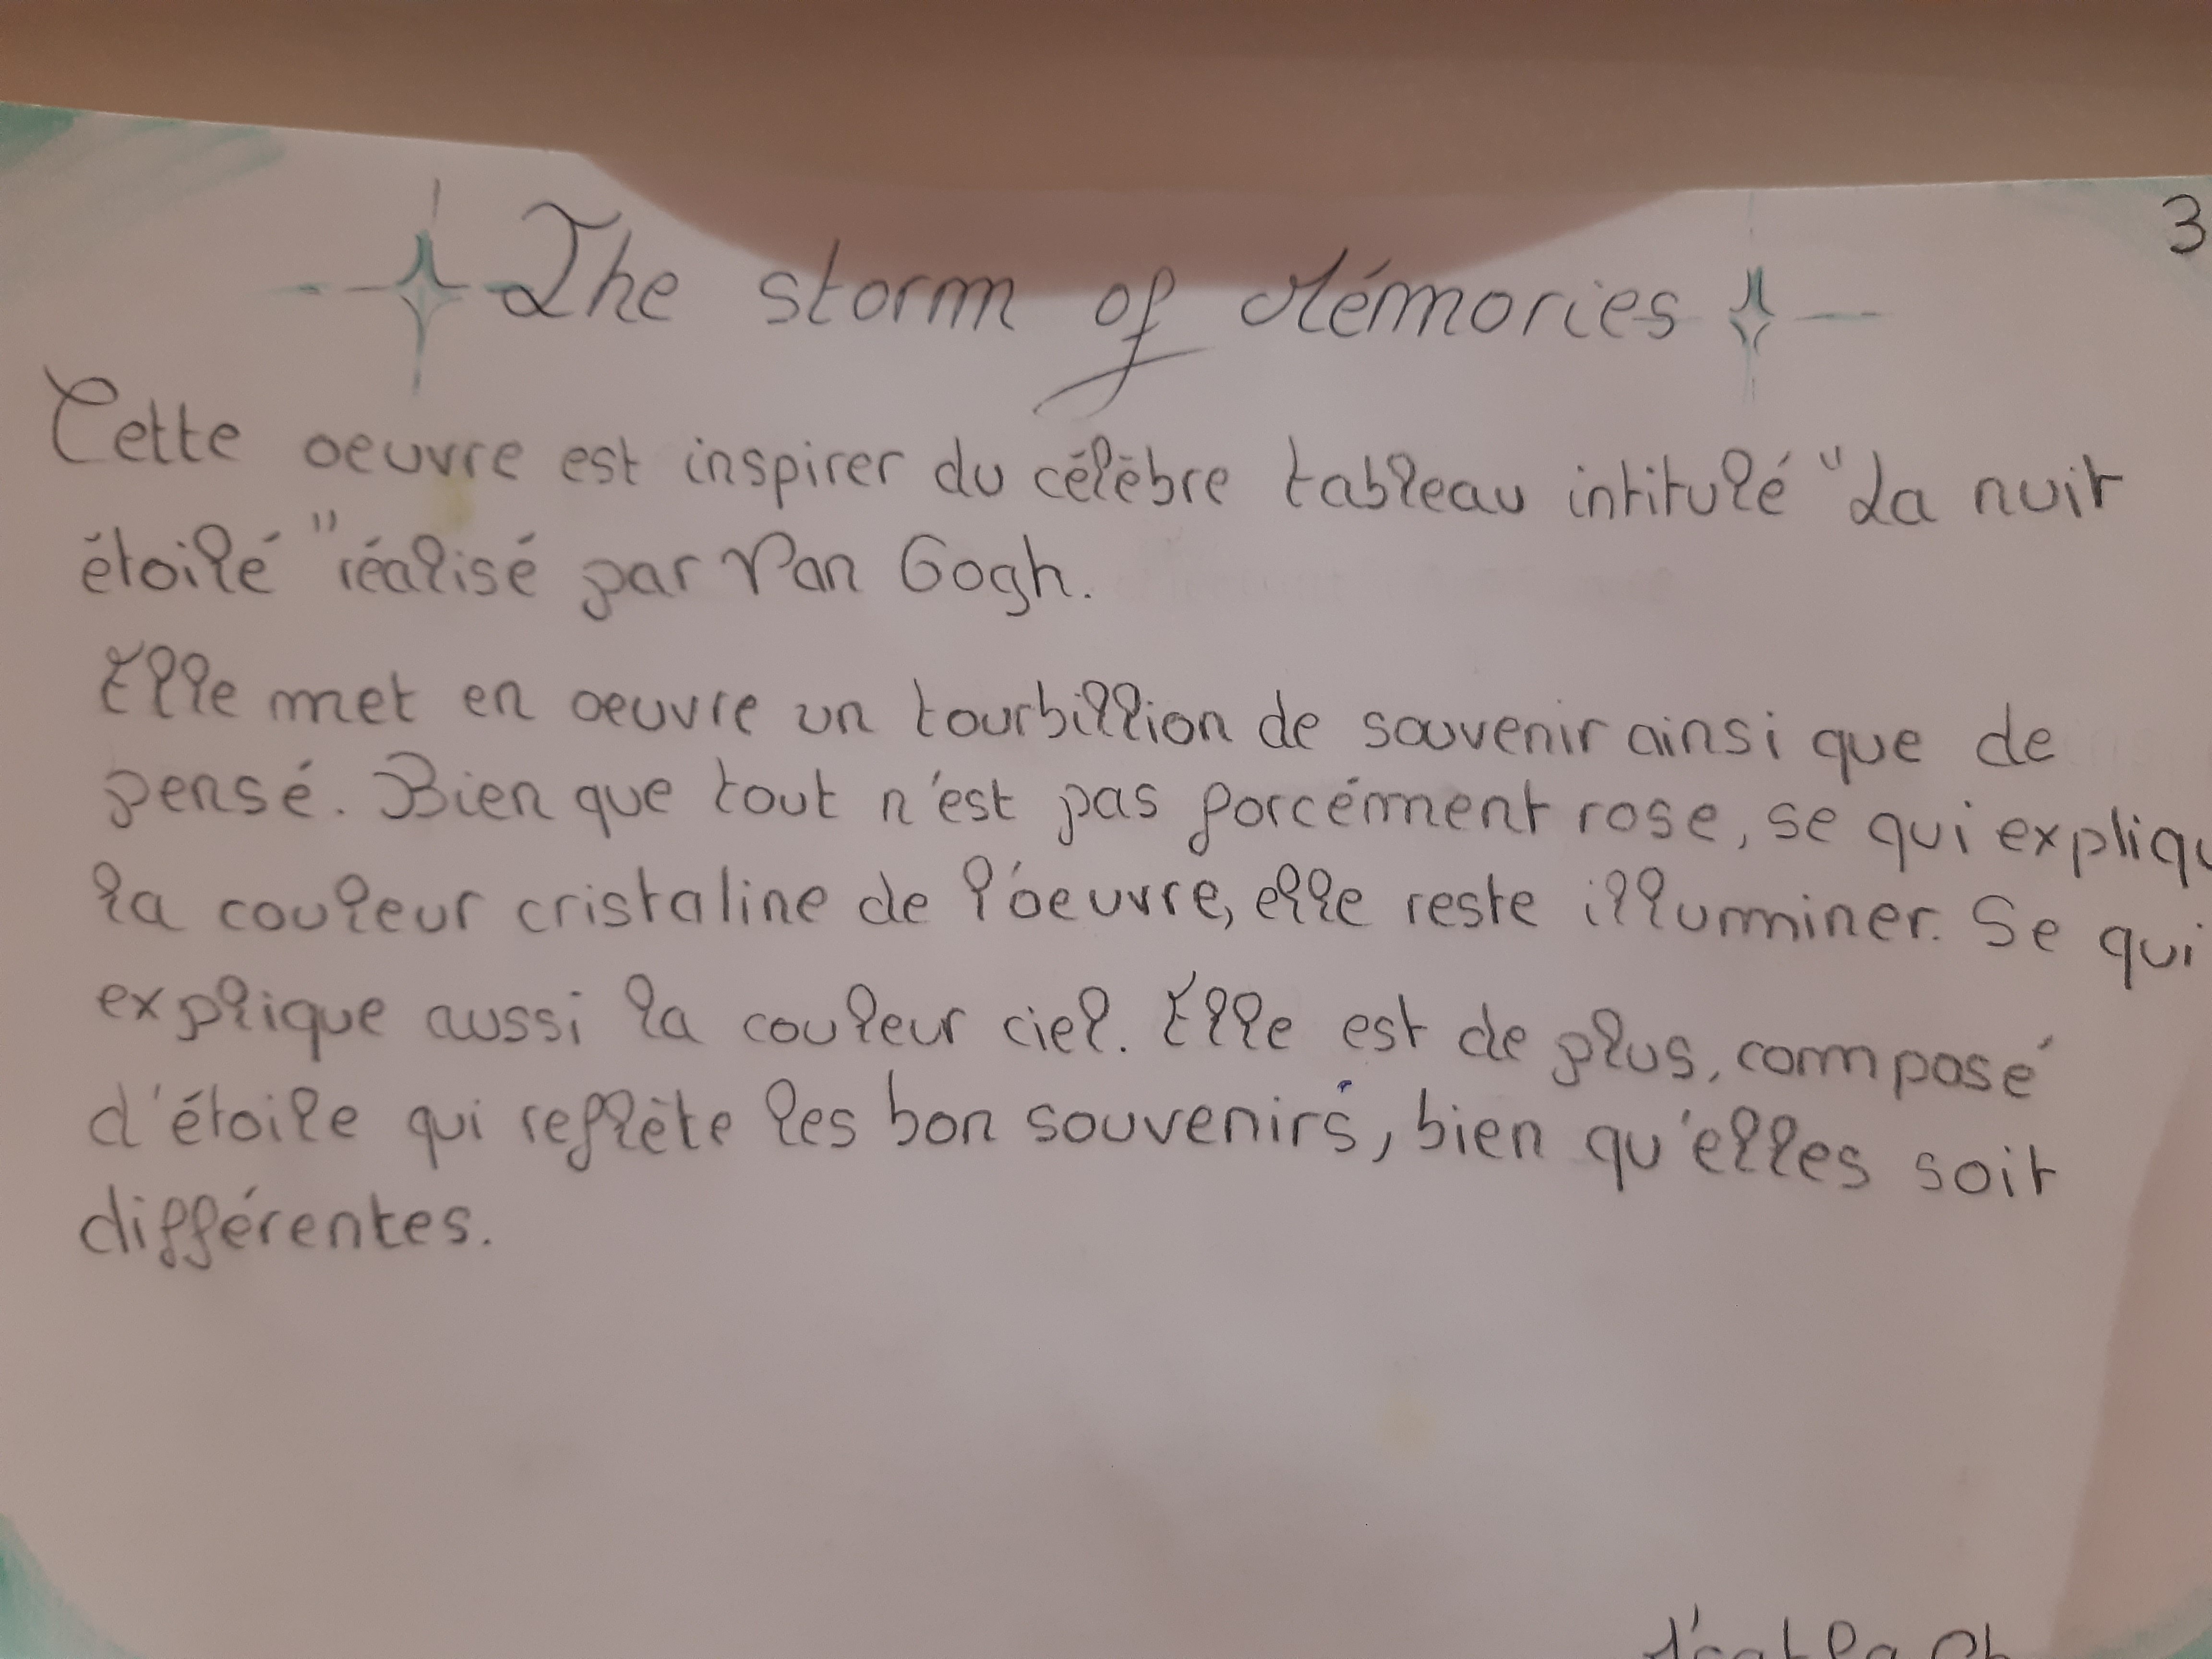 3
The storm of Mémories
Cette oeuvre est inspirer du célèbre tableau intitulé "La nuit
étoilé" réalisé par Van Gogh.
Elle met en oeuvre un tourbillion de souvenir ainsi que de
pensé. Bien que tout n'est pas forcément rose, se qui expliqu
la couleur cristaline de l'oeuvre, elle reste illuminer. Se qui
explique aussi la couleur ciel. Elle est de plus, composé
d'étoile qui reflète les bon souvenirs, bien qu'elles soit
différentes.